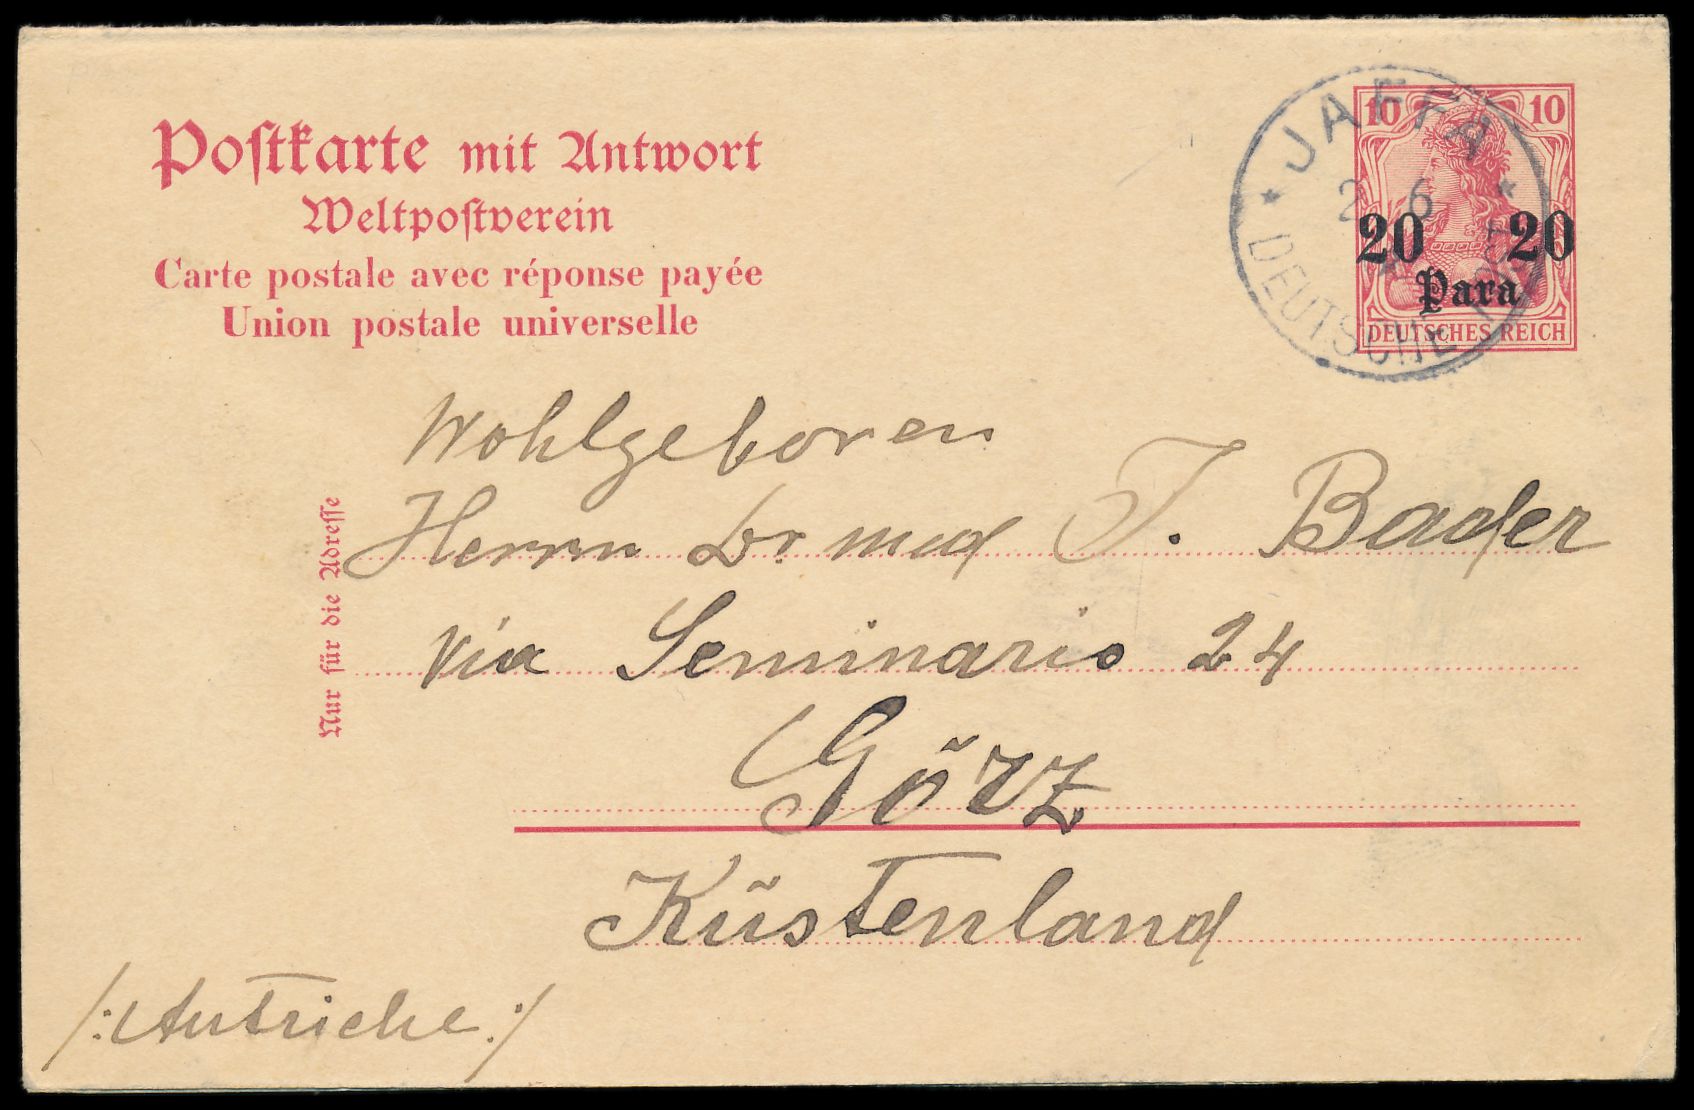 Postkarte mit Antwort
Weltpostverein
Carte postale avec réponse payée
Union postale universelle
10 10
20 20
Para
DEUTSCHES REICH
JAFFA
2 6
DEUTSCHE POST
Nur für die Adresse
Wohlgeboren
Herrn Dr med J. Bader
Via Seminario 24
Görz
Küstenland
/:Autriche:/